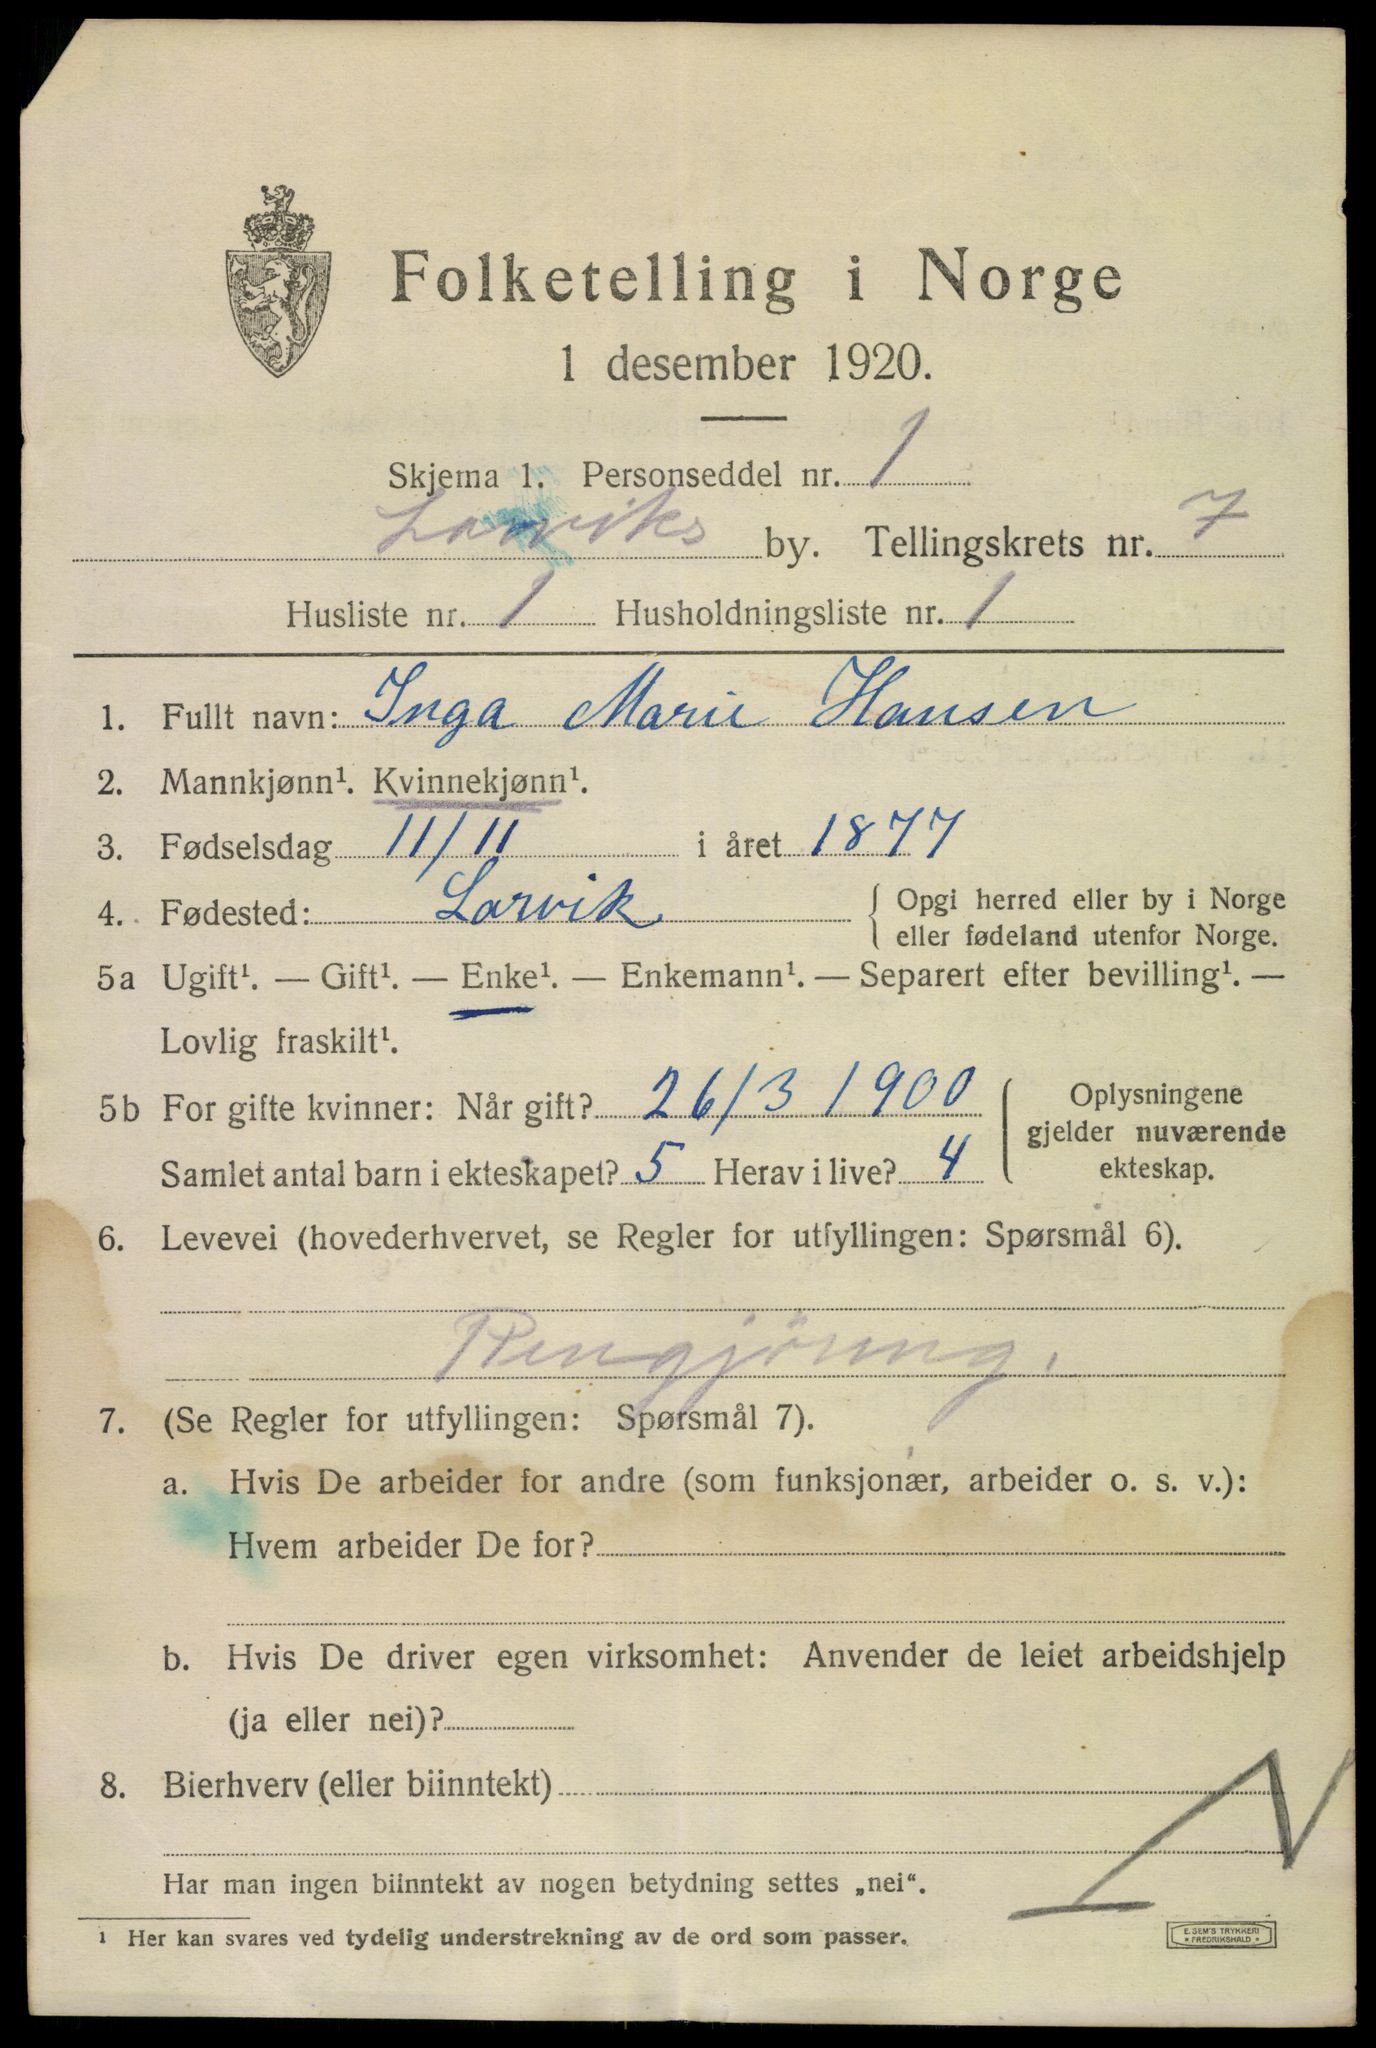 Folketelling i Norge
1 desember 1920.
Skjema 1. Personseddel nr. 1
Larviks by. Tellingskrets nr. 7
Husliste nr. 1 Husholdningsliste nr. 1
1. Fullt navn: Inga Marie Hansen
2. Mannkjønn¹. Kvinnekjønn¹.
3. Fødselsdag 11/11 i året 1877
4. Fødested: Larvik { Opgi herred eller by i Norge
eller fødeland utenfor Norge.
5a Ugift¹. — Gift¹. — Enke¹. — Enkemann¹. — Separert efter bevilling¹. —
Lovlig fraskilt¹.
5b For gifte kvinner: Når gift? 26/3 1900
Samlet antal barn i ekteskapet? 5 Herav i live? 4
Oplysningene
gjelder nuværende
ekteskap.
6. Levevei (hovederhvervet, se Regler for utfyllingen: Spørsmål 6).
Rengjöring.
7. (Se Regler for utfyllingen: Spørsmål 7).
a. Hvis De arbeider for andre (som funksjonær, arbeider o. s. v.):
Hvem arbeider De for?
b. Hvis De driver egen virksomhet: Anvender de leiet arbeidshjelp
(ja eller nei)?
8. Bierhverv (eller biinntekt)
Har man ingen biinntekt av nogen betydning settes „nei“.
¹ Her kan svares ved tydelig understrekning av de ord som passer.
E. SEM'S TRYKKERI
* FREDRIKSHALD *